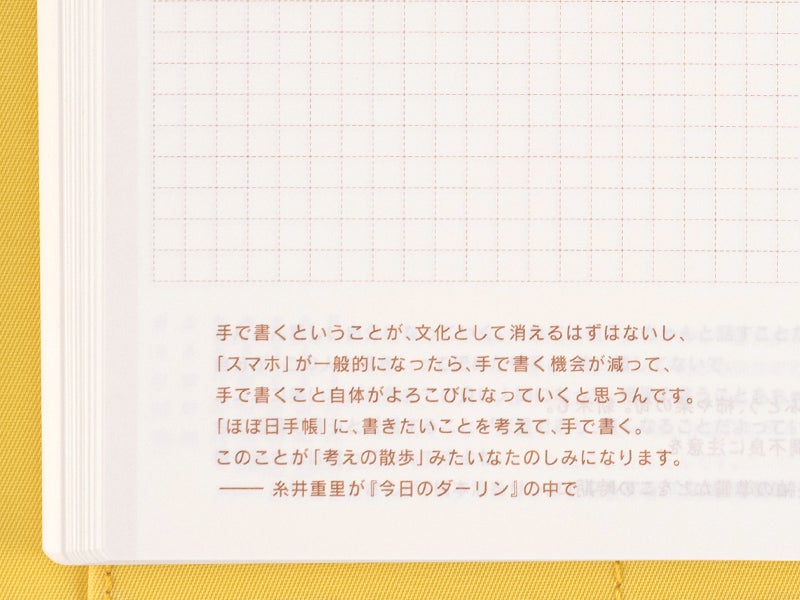 手で書くということが、文化として消えるはずはないし、
「スマホ」が一般的になったら、手で書く機会が減って、
手で書くこと自体がよろこびになっていくと思うんです。
「ほぼ日手帳」に、書きたいことを考えて、手で書く。
このことが「考えの散歩」みたいなたのしみになります。
―― 糸井重里が『今日のダーリン』の中で